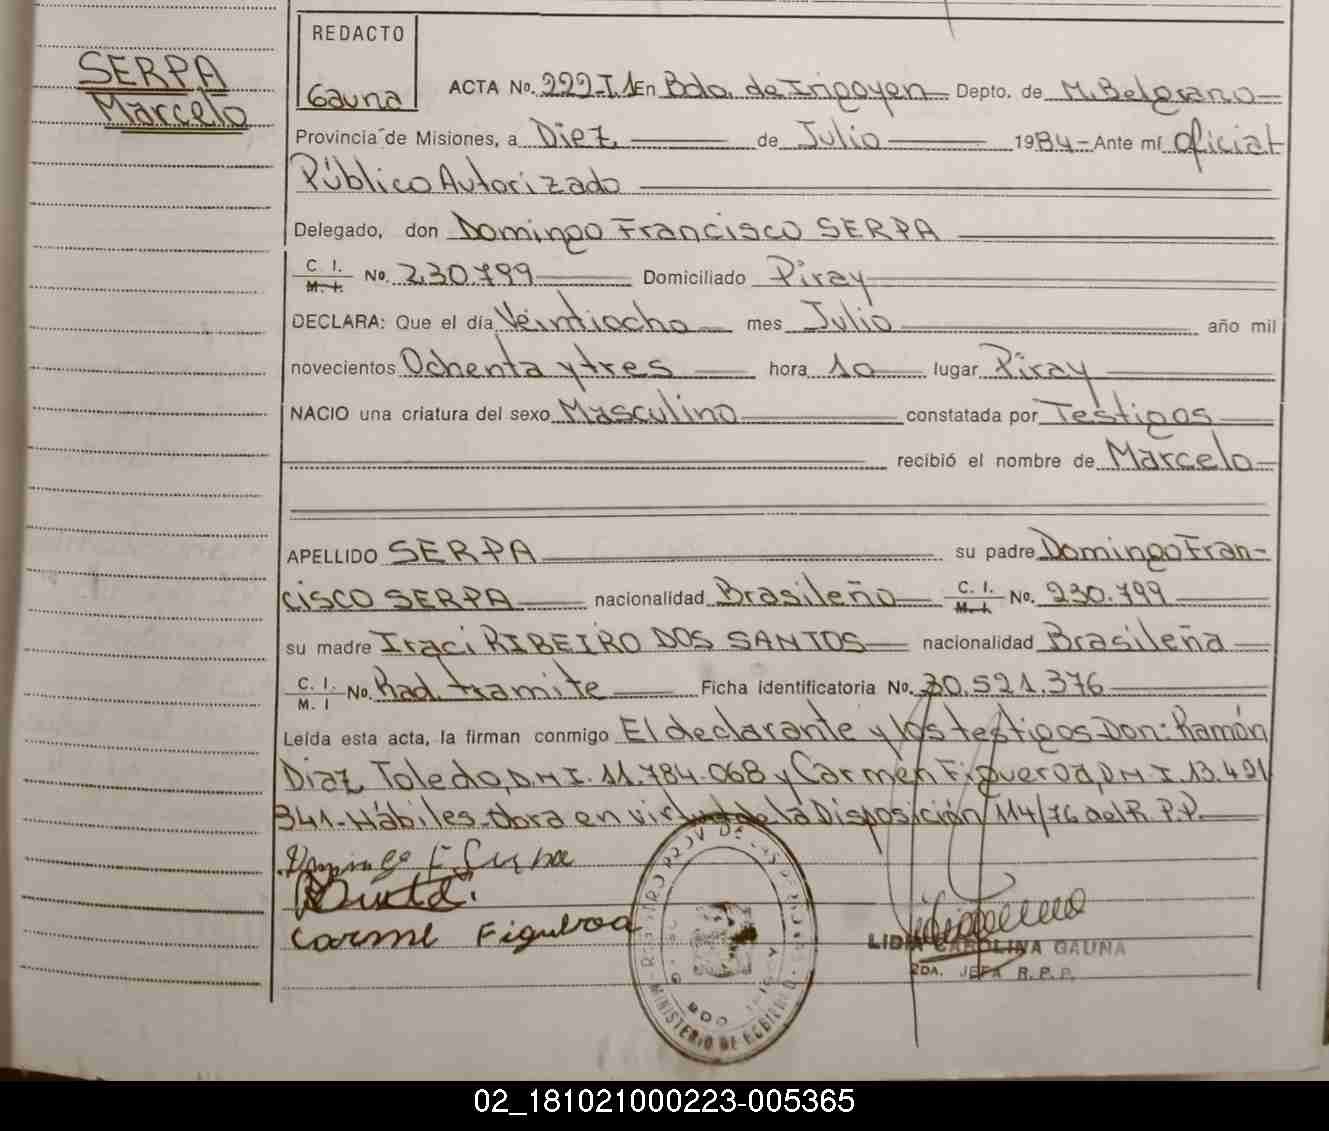 SERPA
Marcelo
REDACTO
Gauna
ACTA No. 222-T.1 En Bdo. de Irigoyen Depto. de M. Belgrano
Provincia de Misiones, a Diez de Julio 1984 - Ante mí oficial
Público Autorizado
Delegado, don Domingo Francisco SERPA
C. I. M. I. No. 230.799 Domiciliado Piray
DECLARA: Que el día Veintiocho mes Julio año mil
novecientos Ochenta y tres hora 10 lugar Piray
NACIO una criatura del sexo Masculino constatada por Testigos
recibió el nombre de Marcelo
APELLIDO SERPA su padre Domingo Fran-
cisco SERPA nacionalidad Brasileño C. I. M. I. No. 230.799
su madre Iraci RIBEIRO DOS SANTOS nacionalidad Brasileña
C. I. M. I No. Rad. tramite Ficha identificatoria No. 30.521.376
Leída esta acta, la firman conmigo El declarante y los testigos Don: Ramón
Diaz Toledo, D.N.I. 11.784.068 y Carmen Figueroa, D.N.I. 13.421
341 - Hábiles - Obra en virtud de la Disposición 114/76 del R.P.P.
Domingo F Serpa
Carme Figueroa
MINISTERIO DE GOBIERNO
LIDIA CAROLINA GAUNA
2DA. JEFA R. P. P.
02_181021000223-005365